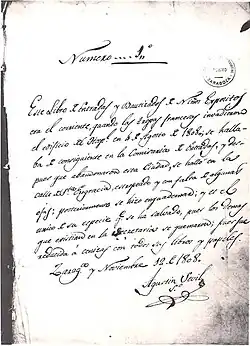 Numero 1.º
Este Libro de Entradas y Bautizados de Niños Expositos
era el corriente, quando las tropas francesas invadieron
el edificio del Hosp.l en 4 de Agosto de 1808, se halla-
ba de consiguiente en la Comisaria de Entradas, y des-
pues que abandonaron esta Ciudad, se halló en la
calle de S.ta Engracia estropeado y con falta de algunas
ojas; posteriormente se hizo enquadernar; y es el
unico de su especie q.e se ha salvado, pues los demas
que existian en la Secretaria se quemaron, pues fue
reducida á cenizas con todos sus libros y papeles
Zarag.za y Noviembre 12 de 1808.
Agustin Sevil